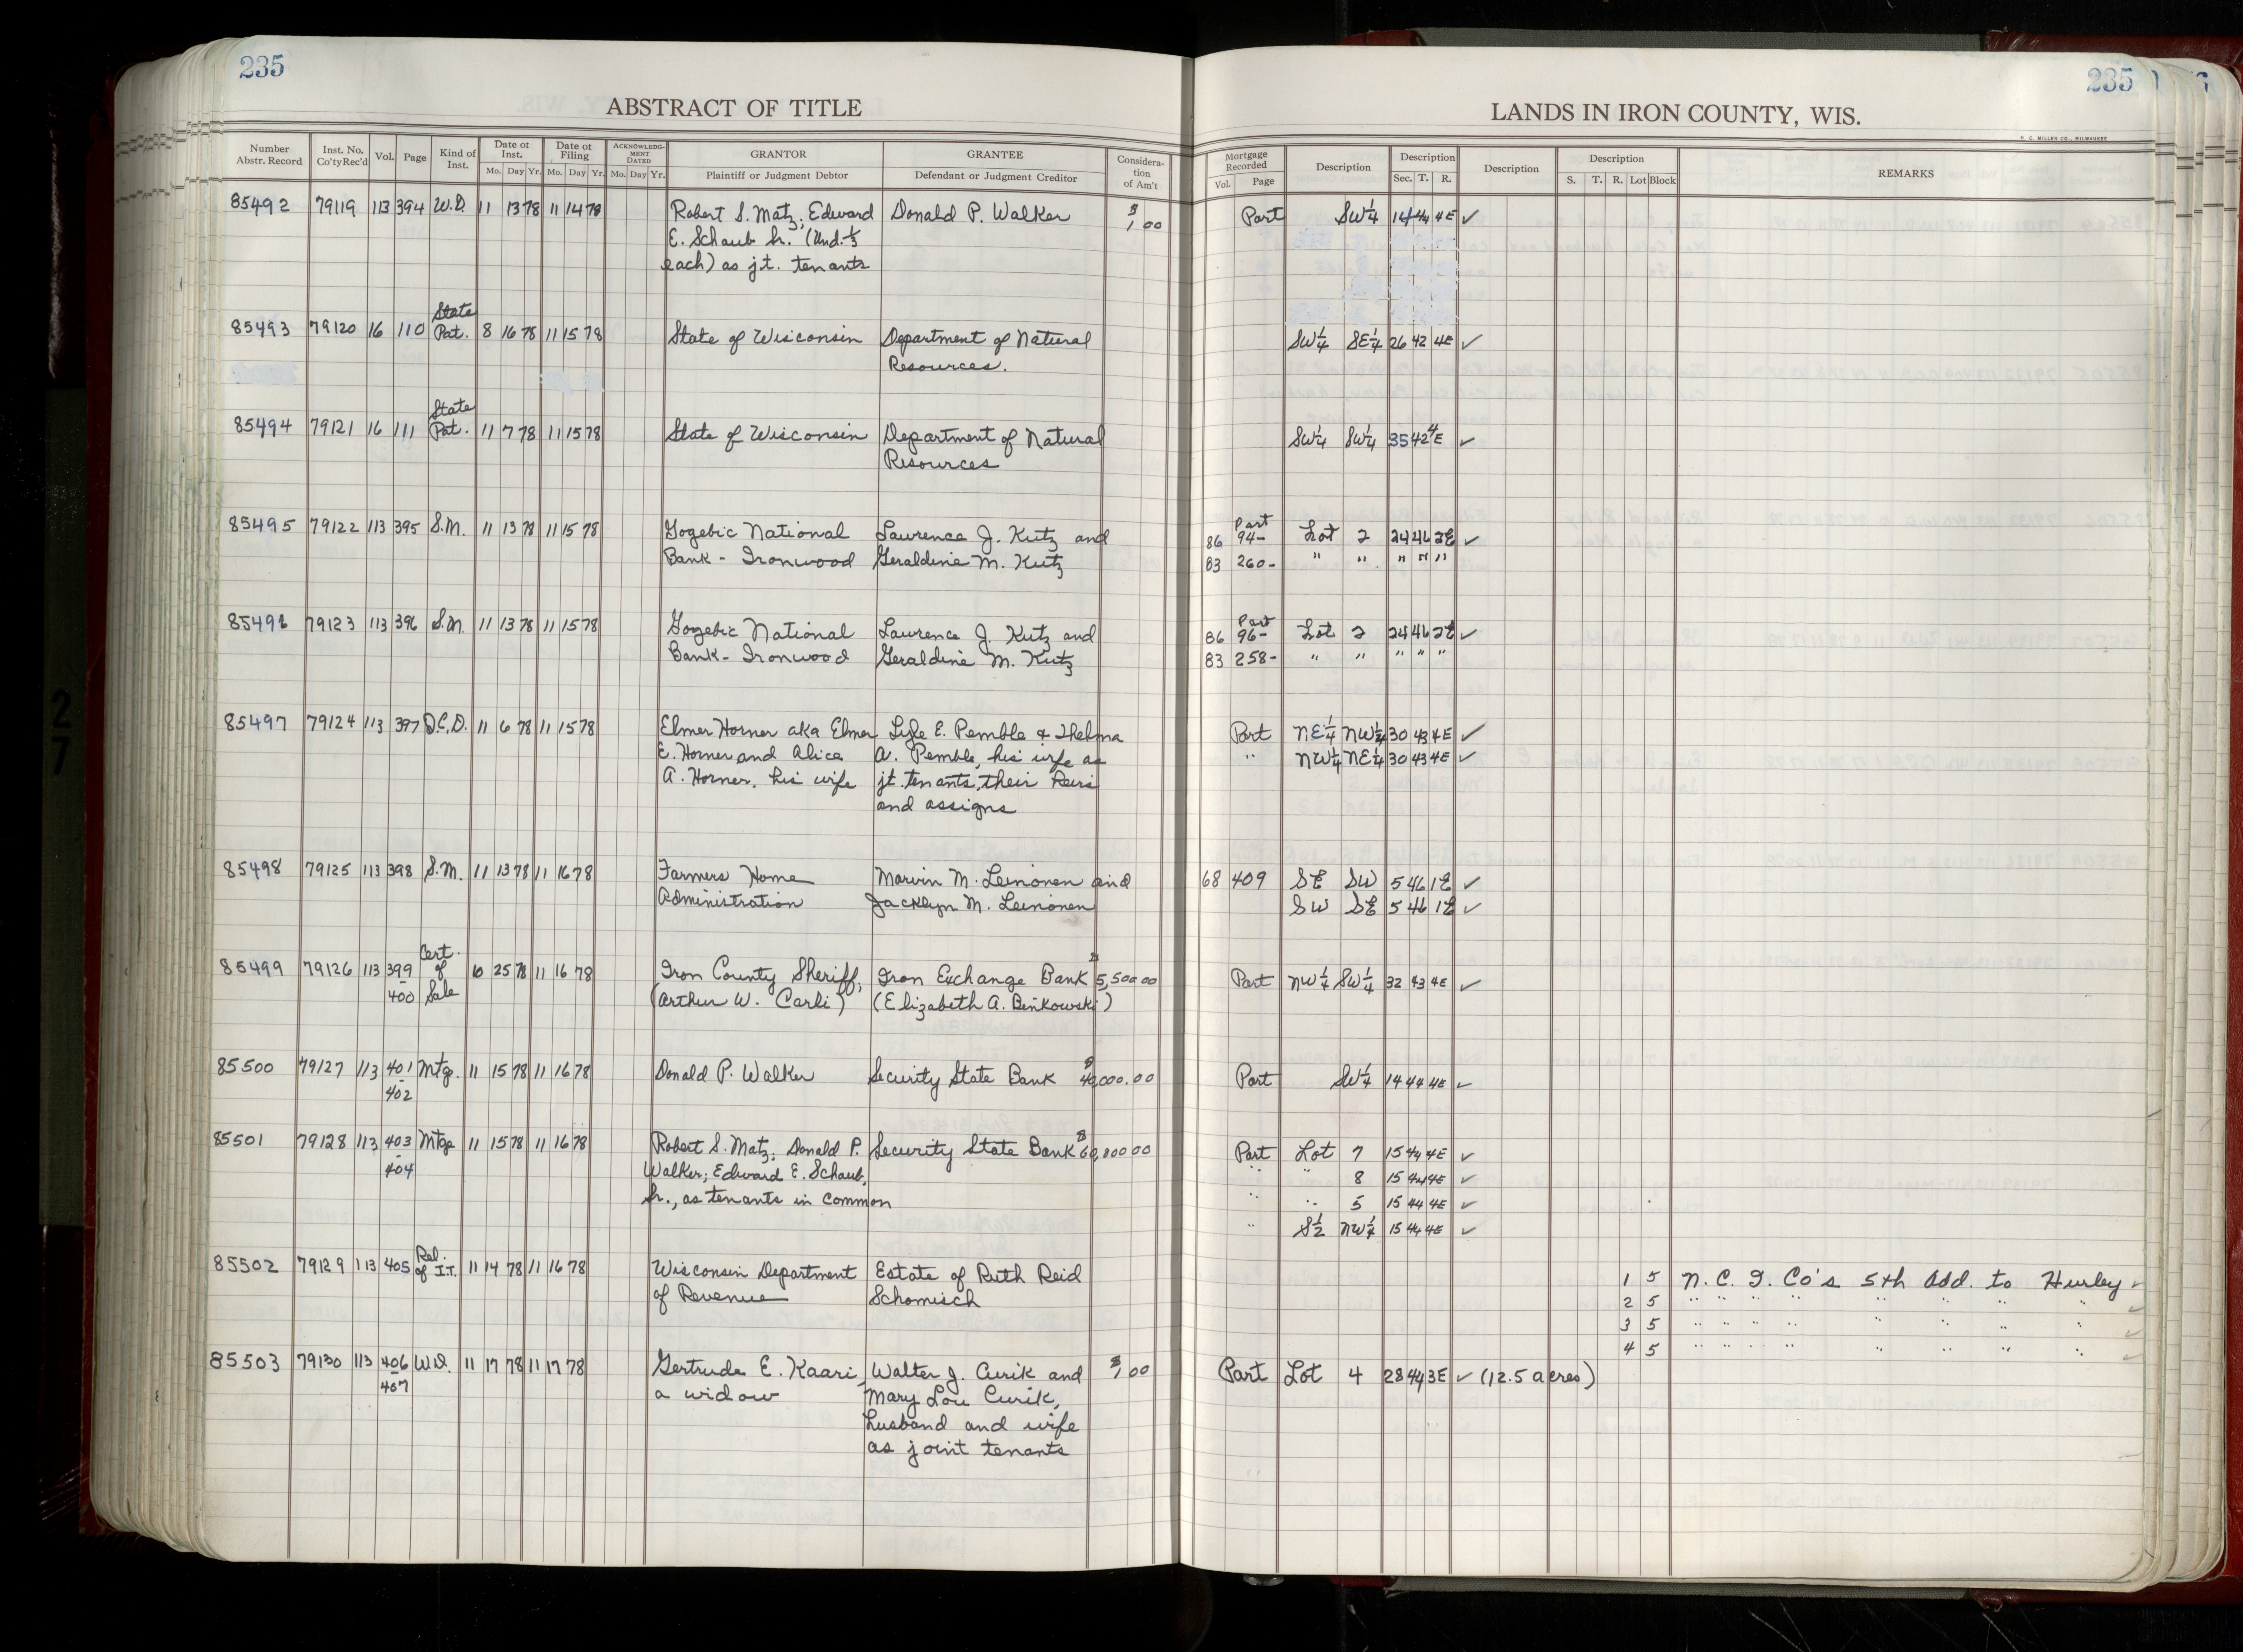 235
235
ABSTRACT OF TITLE
LANDS IN IRON COUNTY, WIS.
H. C. MILLER CO., MILWAUKEE
Number Abstr. Record Inst. No. Co'ty Rec'd Vol. Page Kind of Inst. Date of Inst. Mo. Day Yr. Date of Filing Mo. Day Yr. ACKNOWLEDGMENT DATED Mo. Day Yr. GRANTOR Plaintiff or Judgment Debtor GRANTEE Defendant or Judgment Creditor Consideration of Am't Mortgage Recorded Vol. Page Description Description Sec. T. R. Description Description S. T. R. Lot Block REMARKS
85492 79119 113 394 W.D. 11 13 78 11 14 78 Robert S. Matz; Edward Donald P. Walker $1 00 Part SW¼ 14 44 4E ✓
E. Schaub Sr. (Und. ⅓
each) as jt. tenants
State
85493 79120 16 110 Pat. 8 16 78 11 15 78 State of Wisconsin Department of Natural SW¼ SE¼ 26 42 4E ✓
Resources.
State
85494 79121 16 111 Pat. 11 7 78 11 15 78 State of Wisconsin Department of Natural SW¼ SW¼ 35 42 4E ✓
Resources
85495 79122 113 395 S.M. 11 13 78 11 15 78 Gogebic National Lawrence J. Kutz and 86 Part 94- Lot 2 24 46 2E ✓
Bank - Ironwood Geraldine M. Kutz 83 260- " " " " "
85496 79123 113 396 S.M. 11 13 78 11 15 78 Gogebic National Lawrence J. Kutz and 86 Part 96- Lot 2 24 46 2E ✓
Bank - Ironwood Geraldine M. Kutz 83 258- " " " " "
85497 79124 113 397 Q.C.D. 11 6 78 11 15 78 Elmer Horner aka Elmer Lyle E. Pemble & Thelma Part NE¼ NW¼ 30 43 4E ✓
E. Horner and Alice A. Pemble, his wife as " NW¼ NE¼ 30 43 4E ✓
A. Horner, his wife jt. tenants, their heirs
and assigns
85498 79125 113 398 S.M. 11 13 78 11 16 78 Farmers Home Marvin M. Leinonen and 68 409 SE SW 5 46 1E ✓
Administration Jacklyn M. Leinonen SW SE 5 46 1E ✓
Cert.
85499 79126 113 399 of 10 25 78 11 16 78 Iron County Sheriff, Iron Exchange Bank $5,500 00 Part NW¼ SW¼ 32 43 4E ✓
- 400 Sale (Arthur W. Carli) (Elizabeth A. Benkowski)
85500 79127 113 401 Mtg. 11 15 78 11 16 78 Donald P. Walker Security State Bank $40,000.00 Part SW¼ 14 44 4E ✓
- 402
85501 79128 113 403 Mtg. 11 15 78 11 16 78 Robert S. Matz; Donald P. Security State Bank Part Lot 7 15 44 4E ✓
- 404 Walker; Edward E. Schaub, " " 8 15 44 4E ✓
Sr., as tenants in common " " 5 15 44 4E ✓
" S½ NW¼ 15 44 4E ✓
Rel.
85502 79129 113 405 of I.T. 11 14 78 11 16 78 Wisconsin Department Estate of Ruth Reid 1 5 N. C. I. Co's 5th Add. to Hurley ✓
of Revenue Schomisch 2 5 " " " " " " " " ✓
3 5 " " " " " " " " ✓
4 5 " " " " " " " " ✓
85503 79130 113 406 W.D. 11 17 78 11 17 78 Gertrude E. Kaari, Walter J. Curik and $1 00 Part Lot 4 28 44 3E ✓ (12.5 acres)
- 407 a widow Mary Lou Curik,
husband and wife
as joint tenants